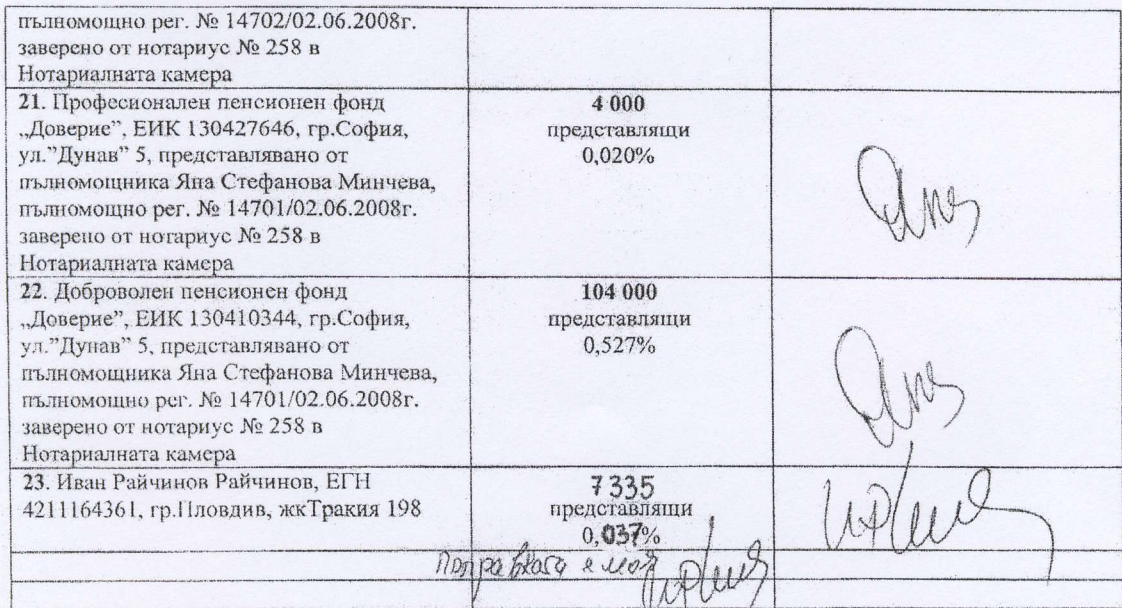 пълномощно рег. № 14702/02.06.2008г.
заверено от нотариус № 258 в
Нотариалната камера
21. Професионален пенсионен фонд
„Доверие”, ЕИК 130427646, гр.София,
ул.”Дунав” 5, представлявано от
пълномощника Яна Стефанова Минчева,
пълномощно рег. № 14701/02.06.2008г.
заверено от нотариус № 258 в
Нотариалната камера
4 000
представлящи
0,020%
22. Доброволен пенсионен фонд
„Доверие”, ЕИК 130410344, гр.София,
ул.”Дунав” 5, представлявано от
пълномощника Яна Стефанова Минчева,
пълномощно рег. № 14701/02.06.2008г.
заверено от нотариус № 258 в
Нотариалната камера
104 000
представлящи
0,527%
23. Иван Райчинов Райчинов, ЕГН
4211164361, гр.Пловдив, жкТракия 198
7335
представлящи
0,037%
Поправката е моя